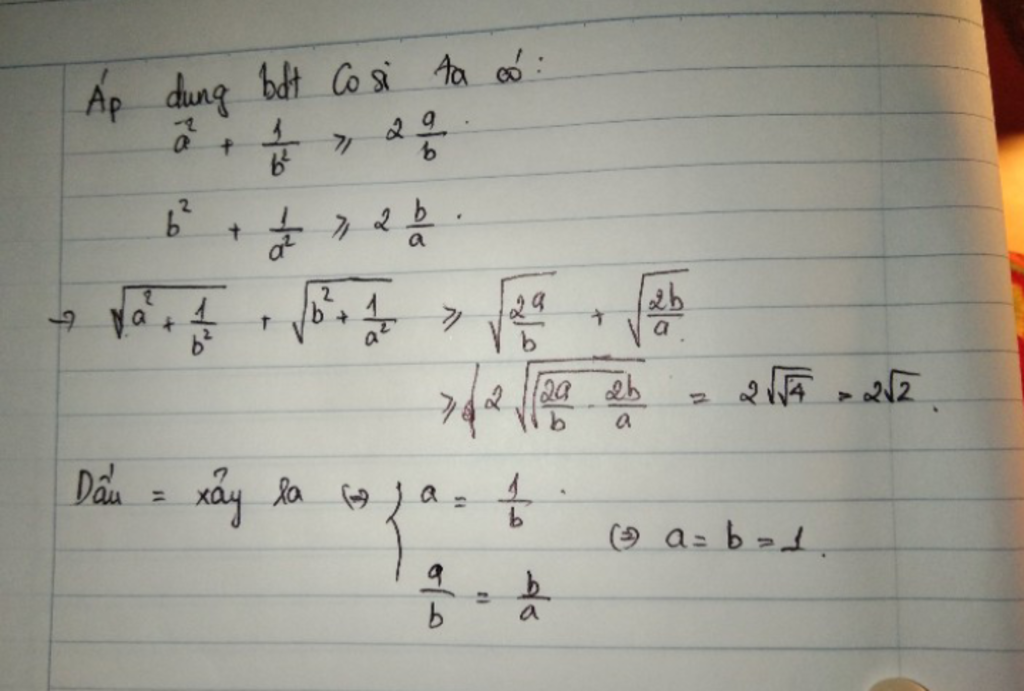 Áp dung bdt Cosi ta có:
a² + 1/b² ⩾ 2 a/b.
b² + 1/a² ⩾ 2 b/a.
→ √(a² + 1/b²) + √(b² + 1/a²) ⩾ √(2a/b) + √(2b/a).
⩾ 2 √(√(2a/b · 2b/a)) = 2√√4 = 2√2.
Dấu = xảy ra (⇒) { a = 1/b.
a/b = b/a (⇒) a = b = 1.